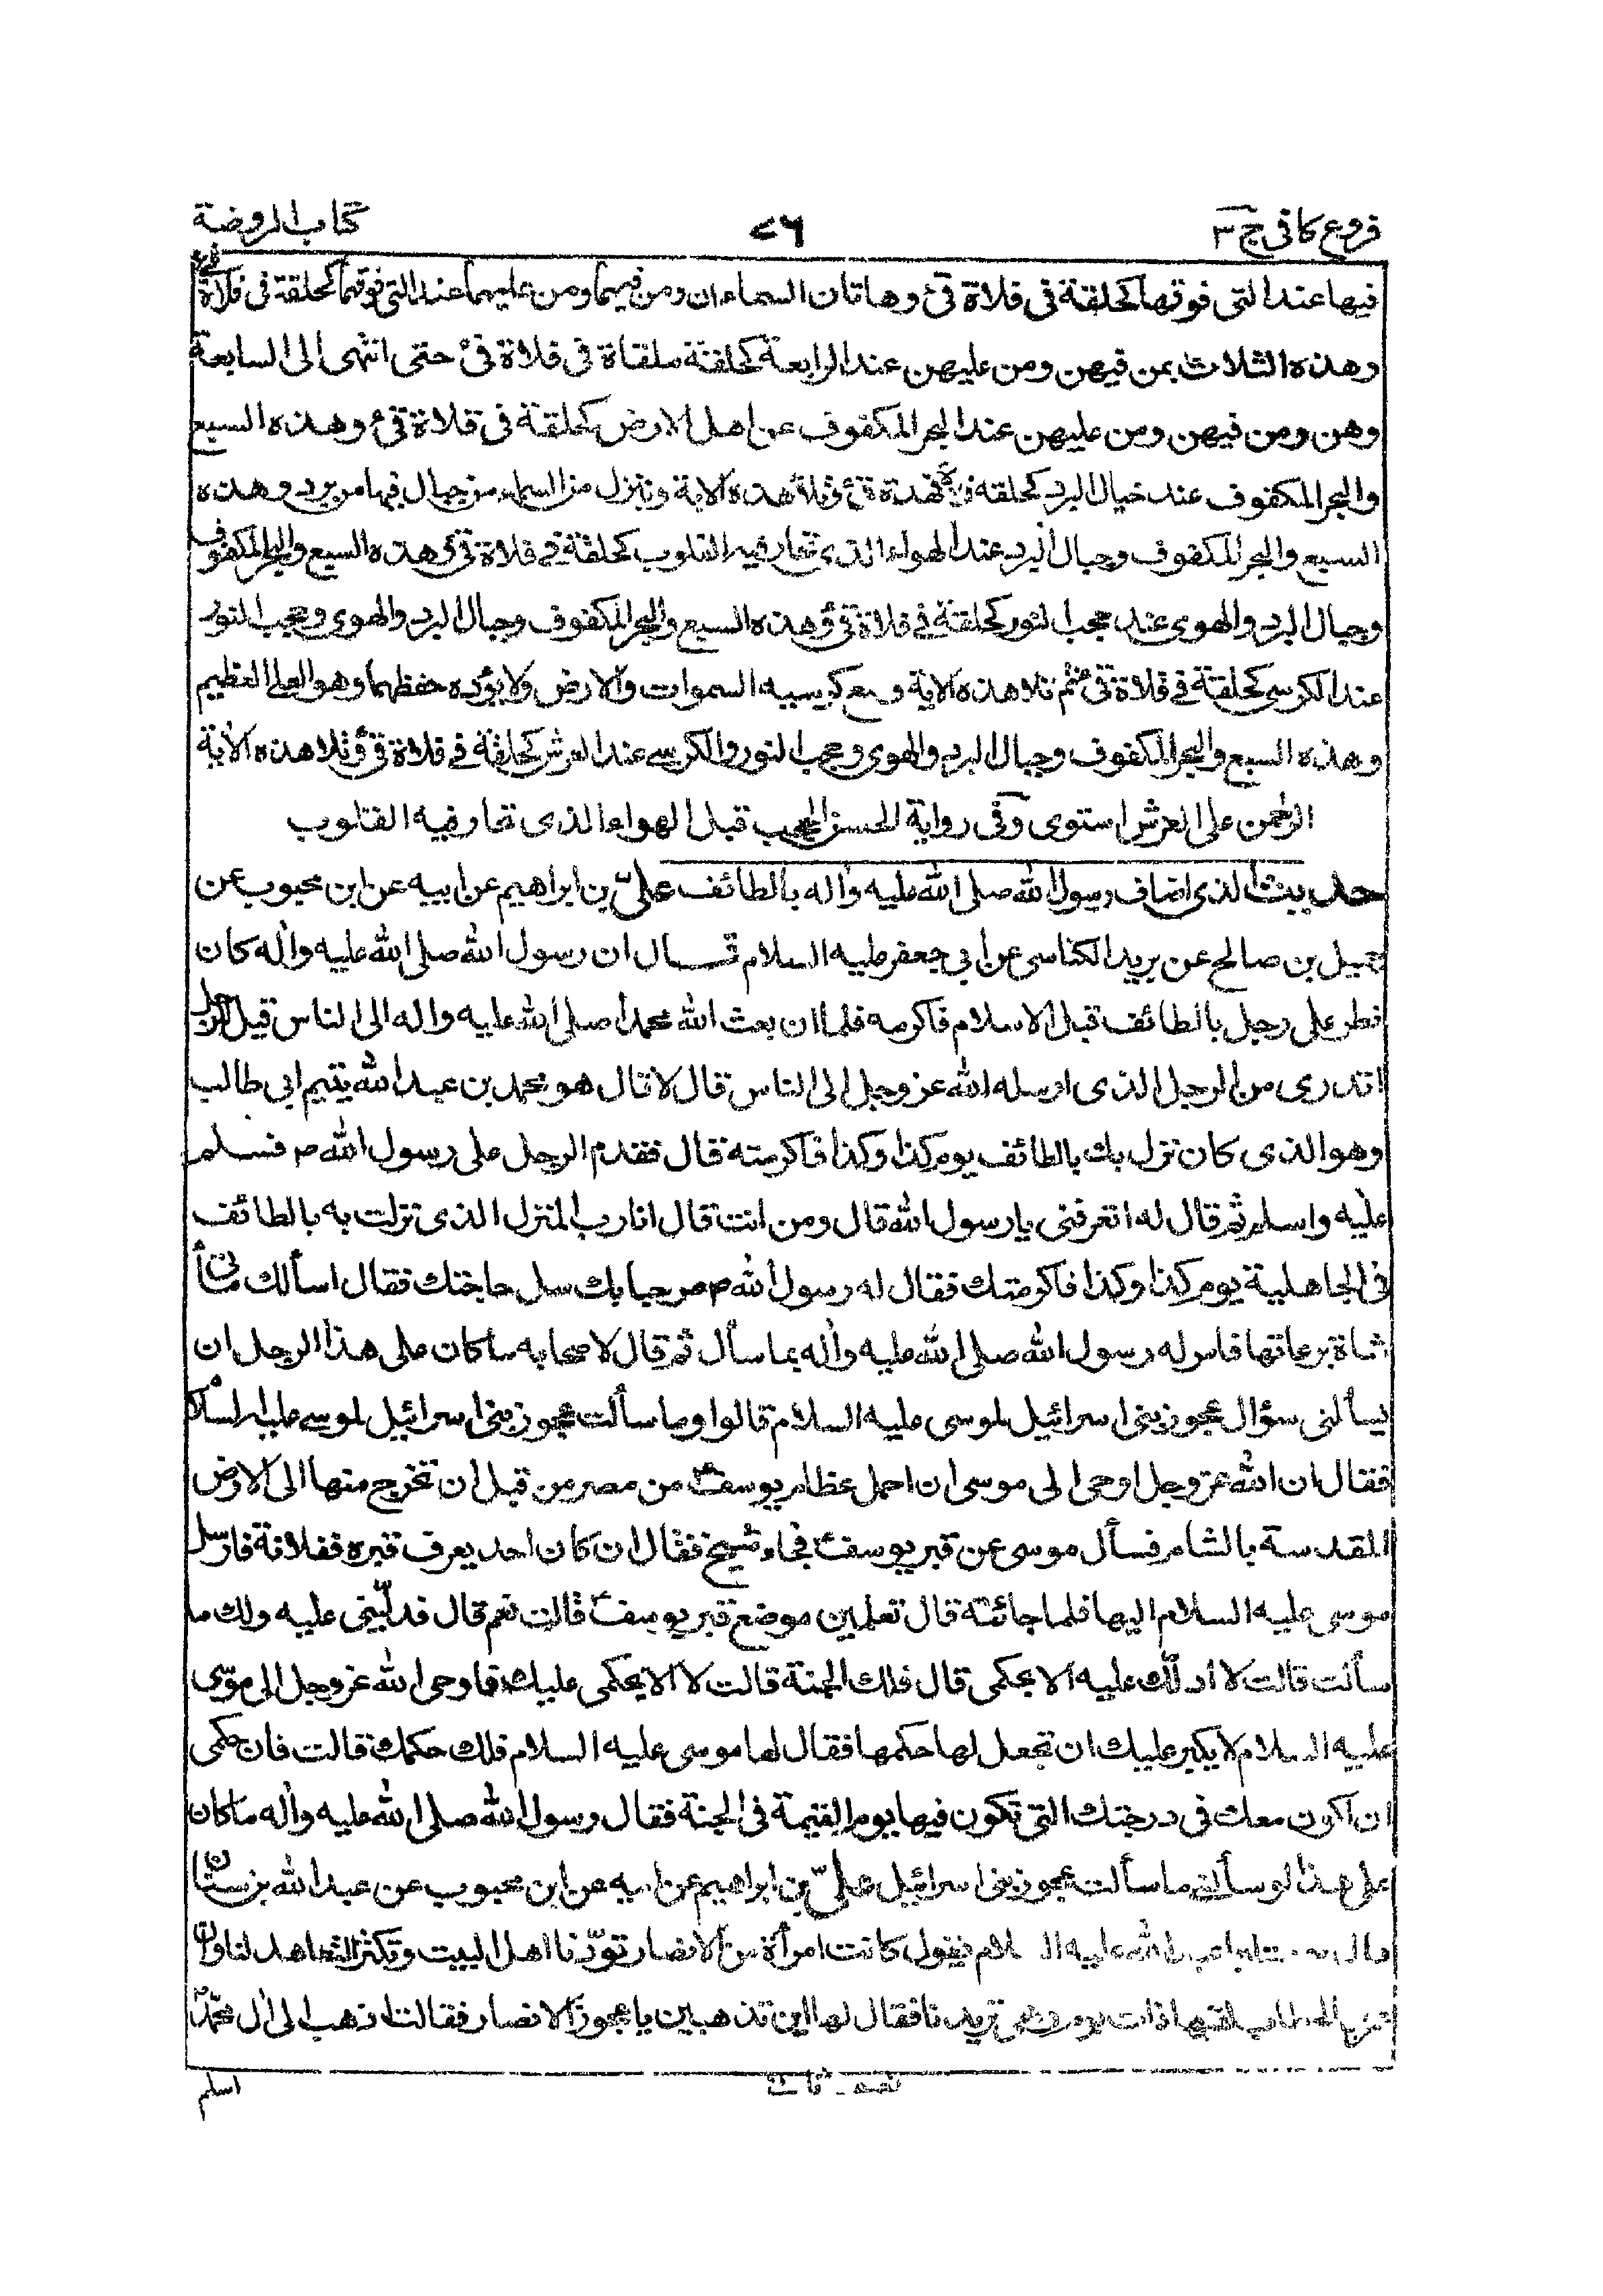 فروع كافى ج ٣
٧٦
كتاب الروضة
فيها عند التى فوقها كحلقة فى فلاة قىّ وهاتان السماءان ومن فيهما ومن عليهما عند التى فوقهما كحلقة فى فلاة قىّ
وهذه الثلاث بمن فيهن ومن عليهن عند الرابعة كحلقة ملقاة فى فلاة قىّ حتى انتهى الى السابعة
وهن ومن فيهن ومن عليهن عند البحر المكفوف عن اهل الارض كحلقة فى فلاة قىّ وهذه السبع
والبحر المكفوف عند جبال البرد كحلقة فى فلاة قىّ وتلا هذه الاية وينزل من السماء من جبال فيها من برد وهذه
السبع والبحر المكفوف وجبال البرد عند الهواء الذى تحار فيه القلوب كحلقة فى فلاة قىّ وهذه السبع والبحر المكفوف
وجبال البرد والهوى عند حجب النور كحلقة فى فلاة قىّ وهذه السبع والبحر المكفوف وجبال البرد والهوى وحجب النور
عند الكرسى كحلقة فى فلاة قىّ ثم تلا هذه الاية وسع كرسيه السموات والارض ولا يؤده حفظهما وهو العلى العظيم
وهذه السبع والبحر المكفوف وجبال البرد والهوى وحجب النور والكرسى عند العرش كحلقة فى فلاة قىّ وتلا هذه الاية
الرحمن على العرش استوى وفى رواية الحسن الحجب قبل الهواء الذى تحار فيه القلوب
حديث الذى اضاف رسول الله صلى الله عليه واله بالطائف علىّ بن ابراهيم عن ابيه عن ابن محبوب عن
جميل بن صالح عن بريد الكناسى عن ابى جعفر عليه السلام قال ان رسول الله صلى الله عليه واله كان
نزل على رجل بالطائف قبل الاسلام فاكرمه فلما ان بعث الله محمدا صلى الله عليه واله الى الناس قيل للرجل
اتدرى من الرجل الذى ارسله الله عز وجل الى الناس قال لا قال هو محمد بن عبد الله يتيم ابى طالب
وهو الذى كان نزل بك بالطائف يوم كذا وكذا فاكرمته قال فقدم الرجل على رسول الله ص فسلم
عليه واسلم ثم قال له اتعرفنى يا رسول الله قال ومن انت قال انا رب المنزل الذى نزلت به بالطائف
فى الجاهلية يوم كذا وكذا فاكرمتك فقال له رسول الله ص مرحبا بك سل حاجتك فقال اسألك مأتى
شاة برعاتها فامر له رسول الله صلى الله عليه واله بما سأل ثم قال لاصحابه ما كان على هذا الرجل ان
يسألنى سؤال عجوز بنى اسرائيل لموسى عليه السلام قالوا وما سألت عجوز بنى اسرائيل لموسى عليه السلام
فقال ان الله عز وجل اوحى الى موسى ان احمل عظام يوسف من مصر من قبل ان تخرج منها الى الارض
المقدسة بالشام فسأل موسى عن قبر يوسف فجاء شيخ فقال ان كان احد يعرف قبره ففلانة فارسل
موسى عليه السلام اليها فلما جائته قال تعلمين موضع قبر يوسف قالت نعم قال فدلّينى عليه ولك ما
سألت قالت لا ادلّك عليه الا بحكمى قال فلك الجنة قالت لا الا بحكمى عليك فاوحى الله عز وجل الى موسى
عليه السلام لا يكبر عليك ان تجعل لها حكمها فقال لها موسى عليه السلام فلك حكمك قالت فان حكمى
ان اكون معك فى درجتك التى تكون فيها يوم القيمة فى الجنة فقال رسول الله صلى الله عليه واله ما كان
على هذا لو سألنى ما سألت عجوز بنى اسرائيل علىّ بن ابراهيم عن ابيه عن ابن محبوب عن عبد الله بن سنان
قال سمعت ابا عبد الله عليه السلام يقول كانت امرأة من الانصار تودّنا اهل البيت وتكثر التعاهد لنا وان
عمر بن الخطاب لقيها ذات يوم وهى تريدنا فقال لها اين تذهبين يا عجوز الانصار فقالت اذهب الى ال محمد
اسلم